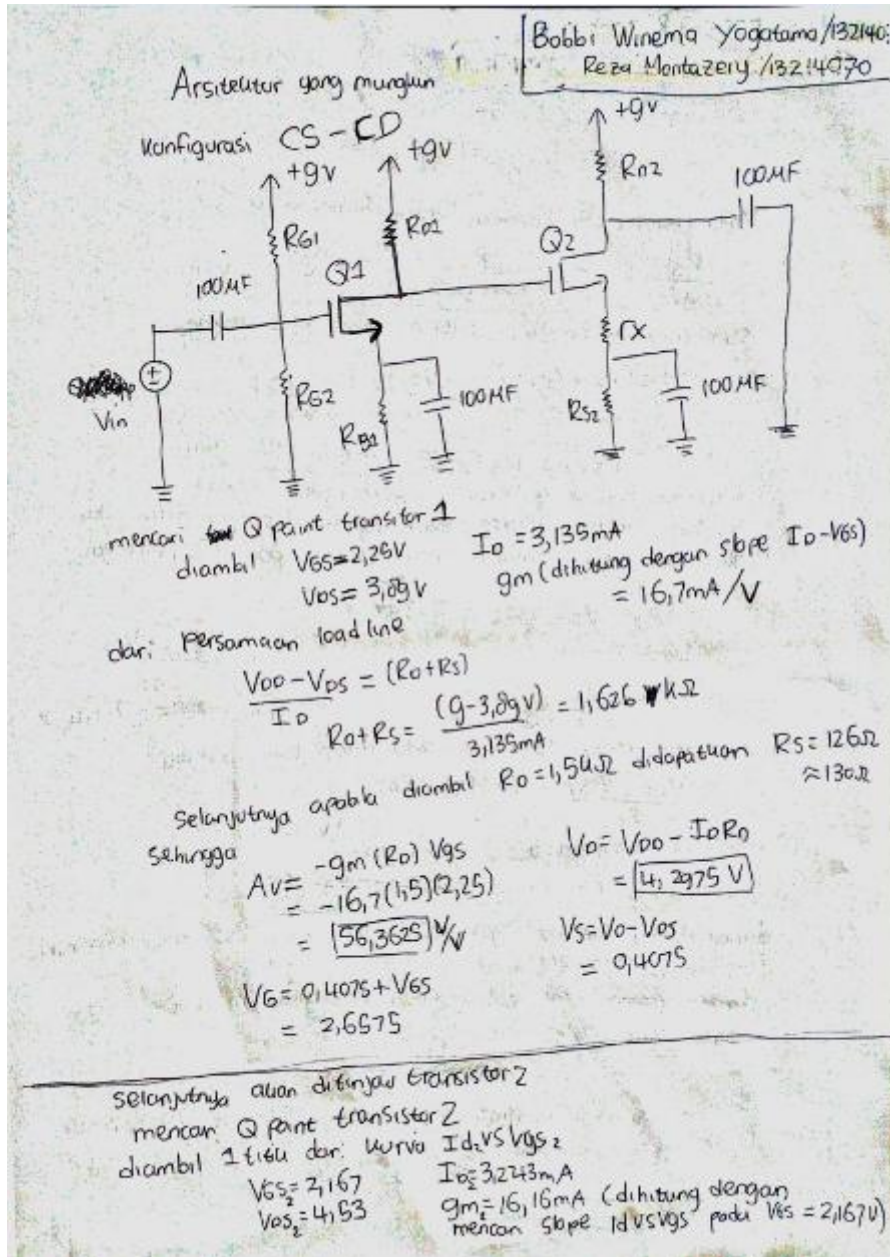 Bobbi Winema Yogatama /132140
Reza Montazery /13214070
Arsitektur yang mungkin
Konfigurasi CS - CD
+9V
+9V
+9V
RG1
RD1
RD2
100MF
100MF
Q1
Q2
Vin
RG2
RS1
100MF
rx
RS2
100MF
mencari Q point transitor 1
diambil VGS=2,25V ID=3,135mA
VDS=3,89V gm (dihitung dengan slope ID-VGS)
= 16,7mA/V
dari Persamaan load line
VDD-VDS / ID = (RD+RS)
RD+RS = (9-3,89V) / 3,135mA = 1,626 kΩ
Selanjutnya apabila diambil RD=1,5kΩ didapatkan RS=126Ω
≈130Ω
Sehingga
AV= -gm (RD) Vgs VD= VDD-IDRD
= -16,7(1,5)(2,25) = 4,2975 V
= 56,3625 V/V VS=VD-VDS
= 0,4075
VG= 0,4075+VGS
= 2,6575
Selanjutnya akan ditinjau transistor 2
mencari Q point transistor 2
diambil 1 titik dari kurva Id2 vs Vgs2
VGS2=2,167 ID2=3,2243mA
VDS2=4,53 gm2=16,16mA (dihitung dengan
mencari slope Id vs Vgs pada VGS = 2,167V)